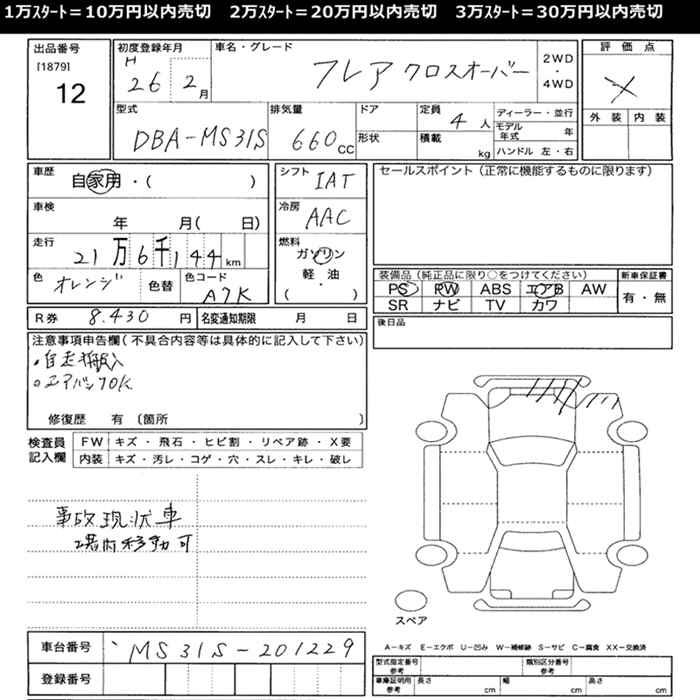 1万ｽﾀｰﾄ＝10万円以内売切　2万ｽﾀｰﾄ＝20万円以内売切　3万ｽﾀｰﾄ＝30万円以内売切
出品番号
[1879]
12
初度登録年月
H 26 2月
車名・グレード
フレア クロスオーバー
2WD
・
4WD
評価点
外装 内装
型式
DBA-MS31S
排気量
660cc
ドア
形状
定員
4人
積載
kg
ディーラー・並行
モデル年式 年
ハンドル 左・右
車歴
自家用・( )
車検
年 月( 日)
走行
21万6千144km
色
オレンジ
色替
色コード
A7K
シフト
IAT
冷房
AAC
燃料
ガソリン
軽・油
( )
セールスポイント（正常に機能するものに限ります）
装備品（純正品に限り○をつけてください）
PS PW ABS エアB AW
SR ナビ TV カワ
新車保証書
有・無
後日品
R券 8.430 円
名変通知期限 月 日
注意事項申告欄(不具合内容等は具体的に記入して下さい)
・自走搬入
・エアバッグOK
修復歴 有 〔箇所 〕
検査員記入欄
FW キズ・飛石・ヒビ割・リペア跡・X要
内装 キズ・汚レ・コゲ・穴・スレ・キレ・破レ
事故現状車
場内移動可
スペア
A－キズ E－エクボ U－凹み W－補修跡 S－サビ C－腐食 XX－交換済
車台番号 MS31S-201229
登録番号
型式指定番号 参考
類別区分番号 参考
車庫証明用 参考 長さ cm 幅 cm 高さ cm